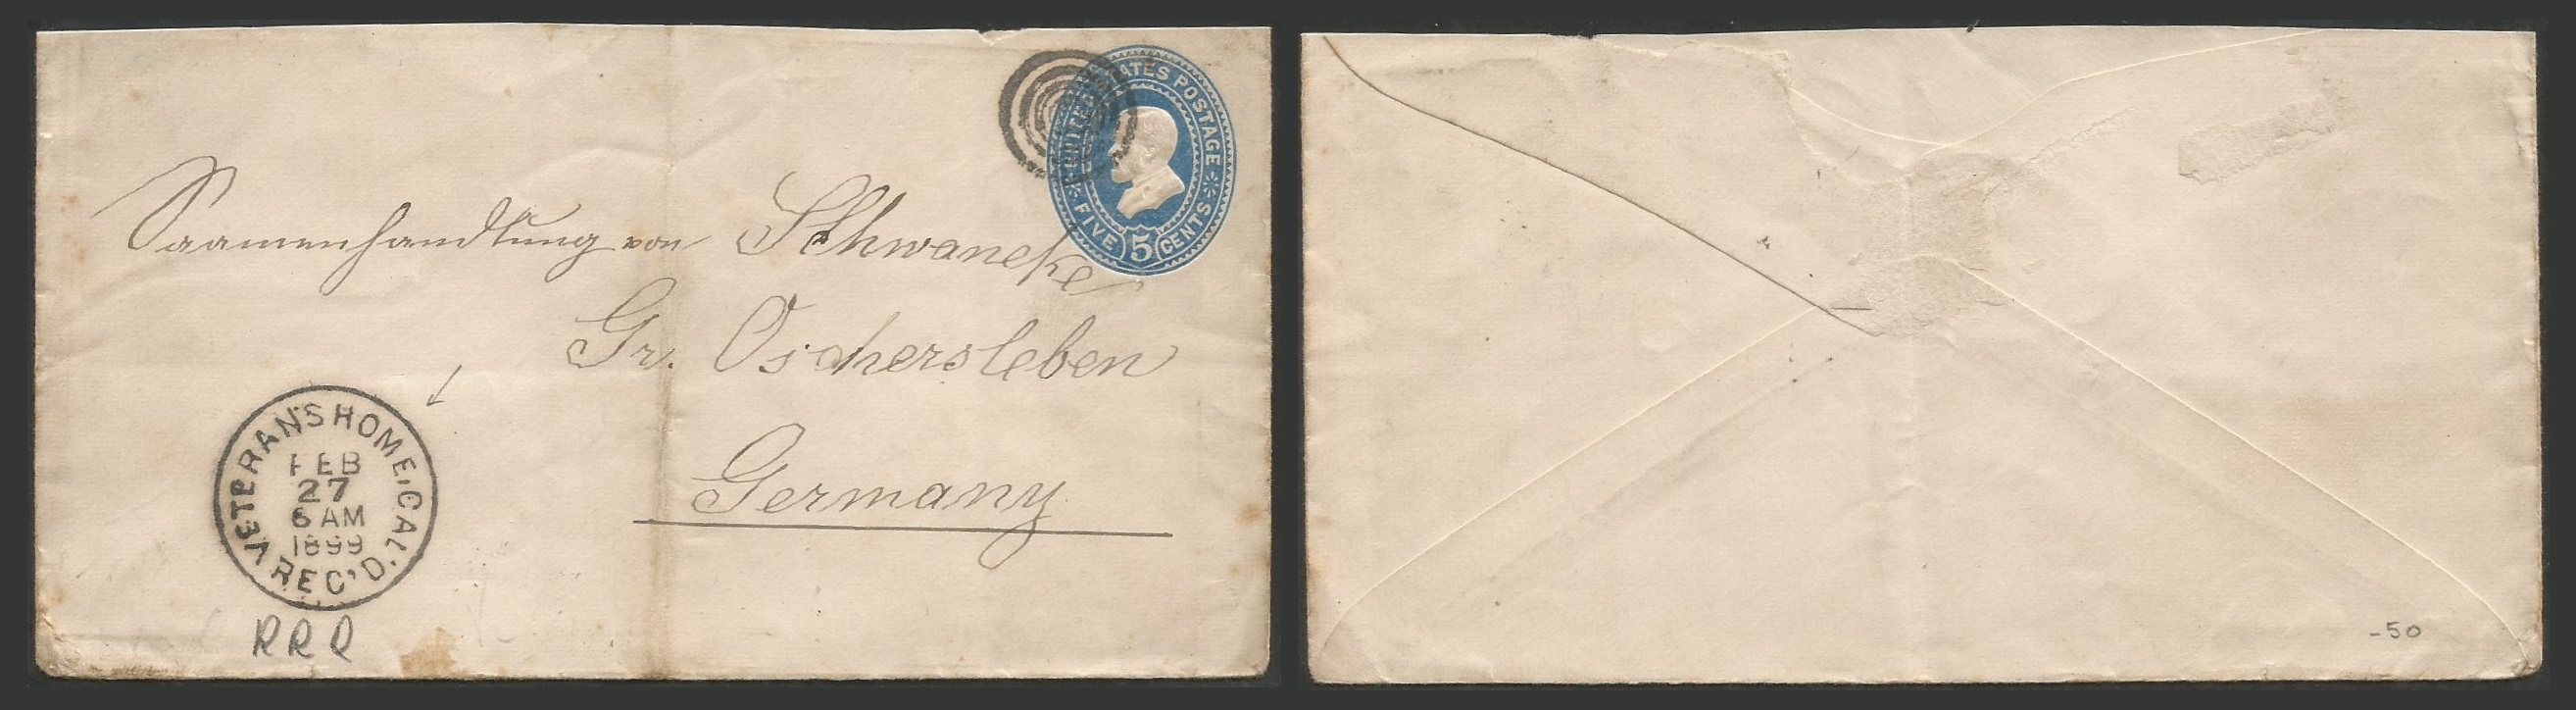 UNITED STATES POSTAGE
FIVE 5 CENTS
Saamenhandlung von Schwaneke
Gr. Oschersleben
Germany
VETERANS HOME, CAL.
FEB
27
6 AM
1899
REC'D.
RRR
-50